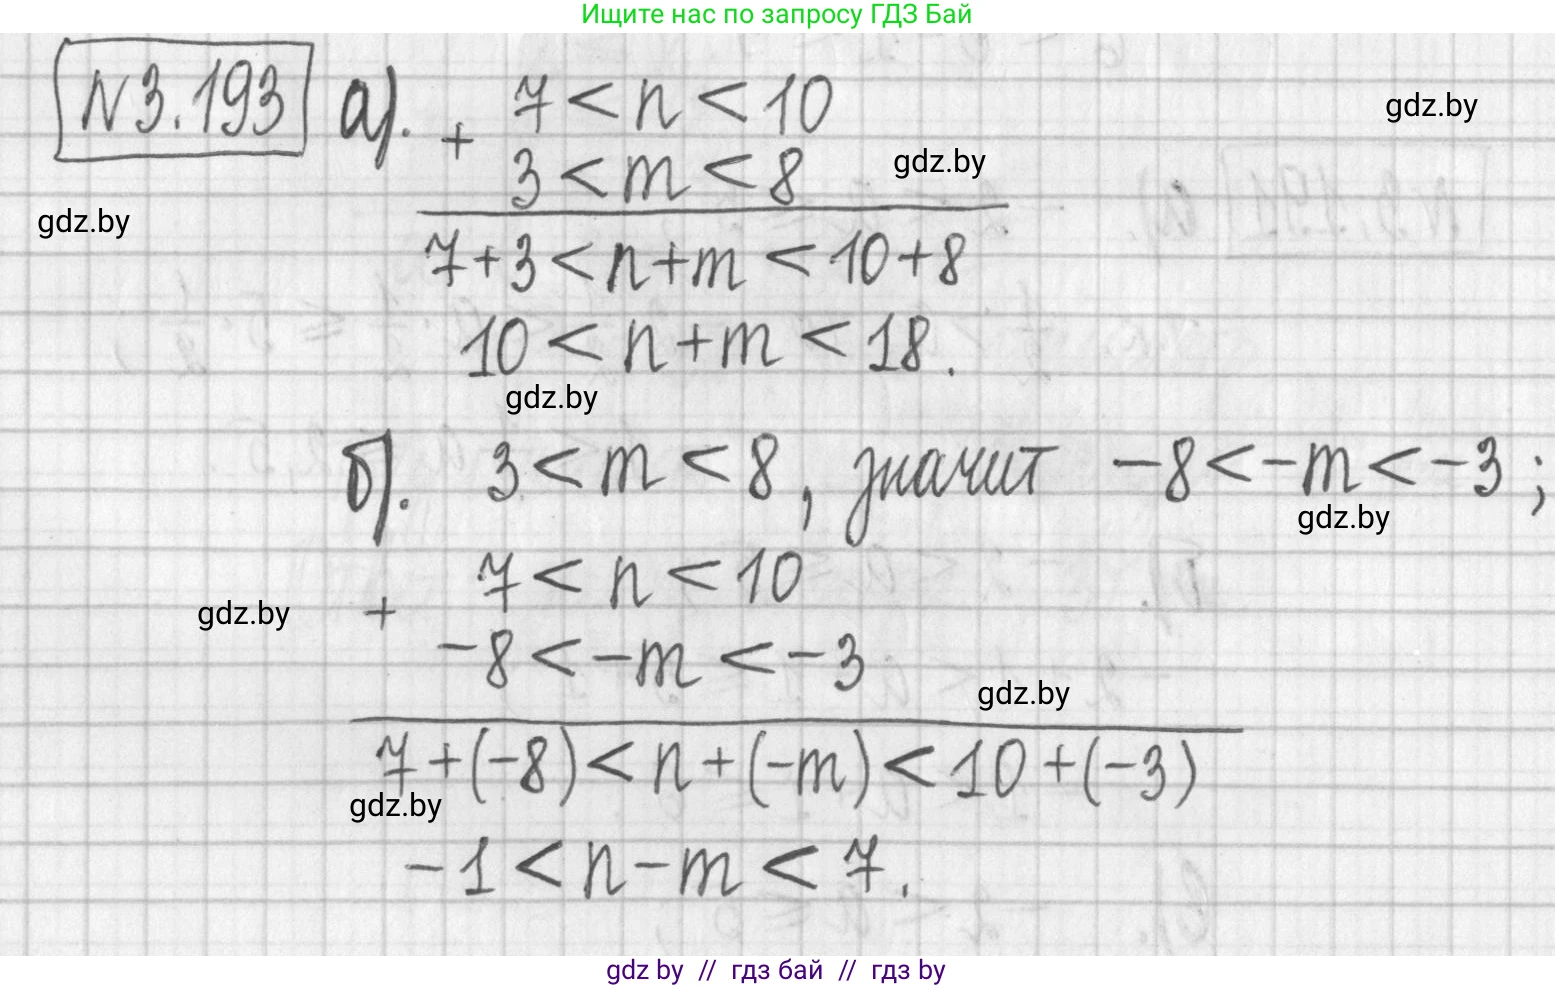 Ищите нас по запросу ГДЗ Бай
N3.193 а). 7 < n < 10
gdz.by
+ 3 < m < 8
gdz.by
gdz.by
7+3 < n+m < 10+8
10 < n+m < 18.
gdz.by
б). 3 < m < 8, значит -8 < -m < -3;
gdz.by
7 < n < 10
gdz.by
+ -8 < -m < -3
gdz.by
7+(-8) < n+(-m) < 10+(-3)
gdz.by
-1 < n-m < 7.
gdz by // гдз бай // гдз by